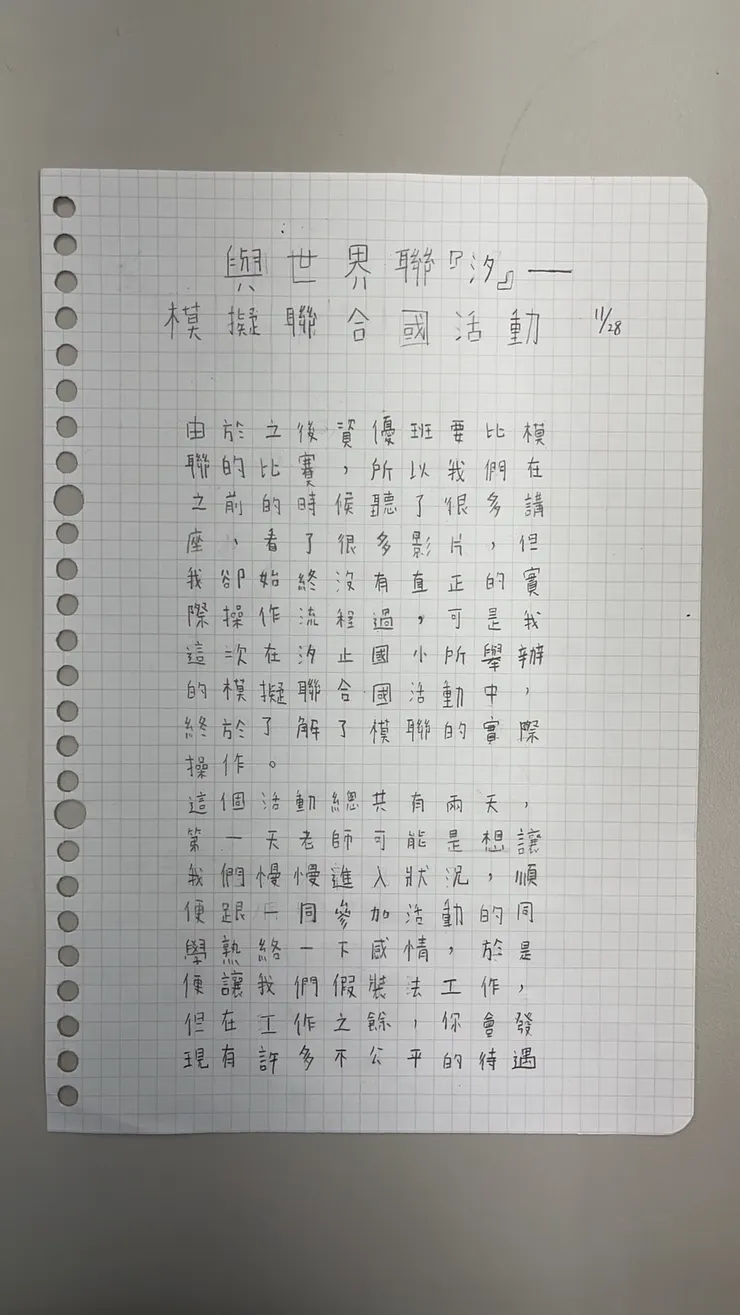 與世界聯『汐』—
模擬聯合國活動 11/28
由於之後資優班要比模
聯的比賽，所以我們在
之前的時候聽了很多講
座，看了很多影片，但
我卻始終沒有直正的實
際操作流程過，可是我
這次在汐止國小所舉辦
的模擬聯合國活動中，
終於了解了模聯的實際
操作。
這個活動總共有兩天，
第一天老師可能是想讓
我們慢慢進入狀況，順
便跟一同參加活動的同
學熟絡一下感情，於是
便讓我們假裝去工作，
但在工作之餘，你會發
現有許多不公平的待遇